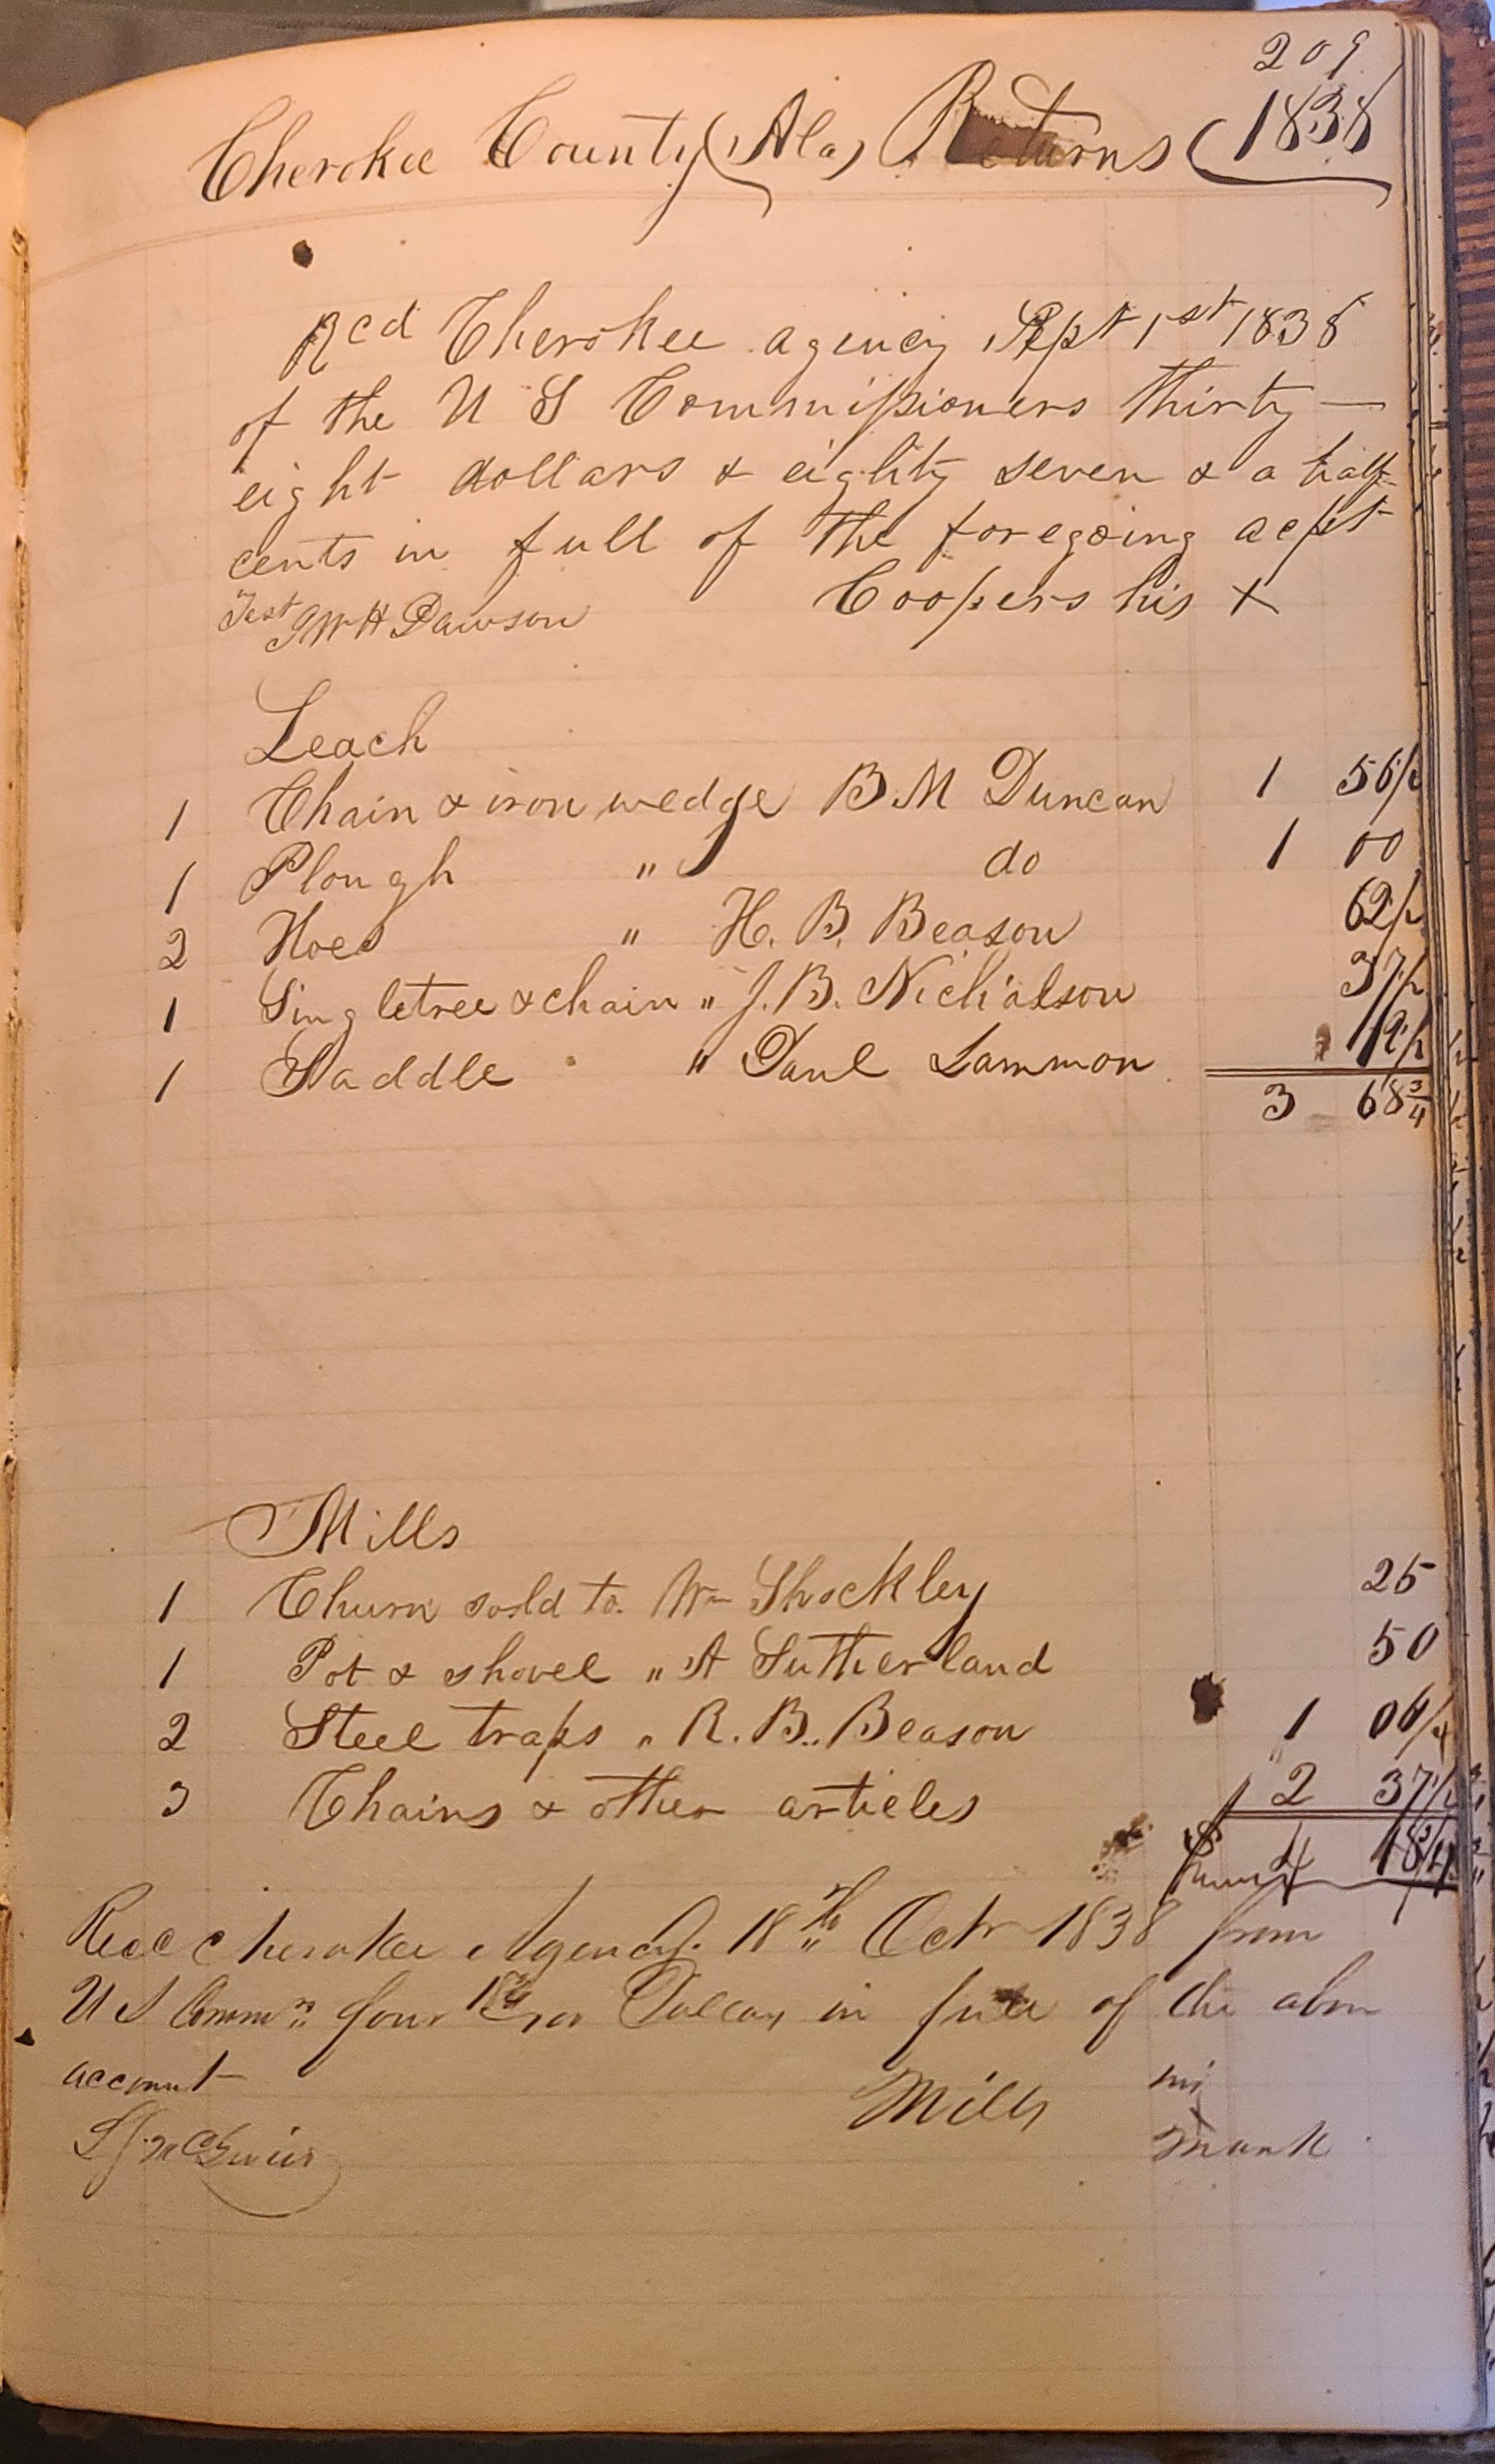 209
Cherokee County (Ala) Returns (1838
Rcd Cherokee agency Sept 1st 1838
of the U S Commissioners thirty —
eight dollars & eighty seven & a half
cents in full of the foregoing acpt
Coopers his X
Test J W H Dawson
Leach
1 Chain & iron wedge B M Duncan 1 56/2
1 Plough " do 1 00
2 Hoes " H. B. Beason 62/2
1 Singletree & chain " J. B. Nicholson 37/2
1 Saddle " Danl Lammon 12/2
3 68 3/4
Mills
1 Churn sold to Wm Shockley 25
1 Pot & shovel " A Sutherland 50
2 Steel traps " R. B. Beason 1 06/4
3 Chains & other articles 2 37/2
$ 4 18 3/4
Recd Cherokee Agency. 18th Octr 1838 from
U S Commrs four Dollars in full of the above
account
Mills his
mark